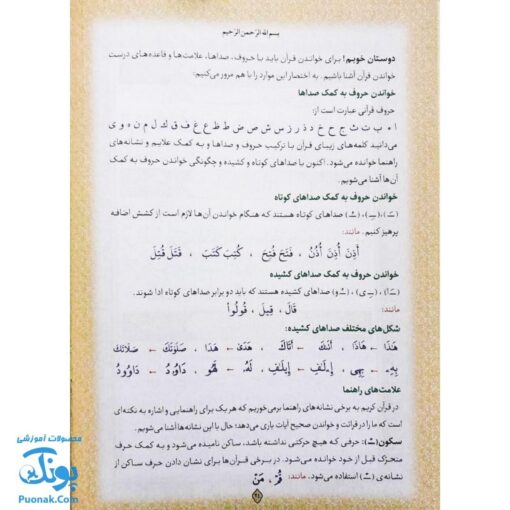 بسم الله الرّحمن الرّحیم
دوستان خوبم! برای خواندن قرآن باید با حروف، صداها، علامت‌ها و قاعده‌های درست
خواندن قرآن آشنا باشیم. به اختصار این موارد را با هم مرور می‌کنیم:
خواندن حروف به کمک صداها
حروف قرآنی عبارت است از:
ا ء ب ت ث ج ح خ د ذ ر ز س ش ص ض ط ظ ع غ ف ق ک ل م ن ه و ی
می‌دانید کلمه‌های زیبای قرآن با ترکیب حروف و صداها و به کمک علایم و نشانه‌های
راهنما خوانده می‌شود. اکنون با صداهای کوتاه و کشیده و چگونگی خواندن حروف به کمک
آن‌ها آشنا می‌شویم.
خواندن حروف به کمک صداهای کوتاه
(ـَ)، (ـِ)، (ـُ) صداهای کوتاه هستند که هنگام خواندن آن‌ها لازم است از کشش اضافه
پرهیز کنیم. مانند:
أَذِنَ أُذِنَ أُذُنُ ، فَتَحَ فُتِحَ ، كُتِبَ كَتَبَ ، قَتَلَ قُتِلَ
خواندن حروف به کمک صداهای کشیده
(ـَا)، (ـِی)، (ـُو) صداهای کشیده هستند که باید دو برابر صداهای کوتاه ادا شوند.
مانند: قَالَ ، قِيلَ ، قُولُواْ
شکل‌های مختلف صداهای کشیده:
هَٰذَا ← هَاذَا ، أَتَىٰكَ ← أَتَاكَ ، هَدَىٰ ← هَدَا ، صَلَوٰتَكَ ← صَلَاتَكَ
بِهِۦ ← بِهِي ، إِۦلَٰفِ ← إِيلَٰفِ ، لَهُۥ ← لَهُو ، دَاوُۥدُ ← دَاوُودُ
علامت‌های راهنما
در قرآن کریم به برخی نشانه‌های راهنما برمی‌خوریم که هر یک برای راهنمایی و اشاره به نکته‌ای
است که ما را در قرائت و خواندن صحیح آیات یاری می‌دهد؛ حال با این نشانه‌ها آشنا می‌شویم.
سکون(ـْ): حرفی که هیچ حرکتی نداشته باشد، ساکن نامیده می‌شود و به کمک حرف
متحرّک قبل از خود خوانده می‌شود. در برخی قرآن‌ها برای نشان دادن حرف ساکن از
نشانه‌ی (ـْ) استفاده می‌شود. مانند: قُرْ، مَنْ
محصولات آموزشی
پونک
Puonak.Com